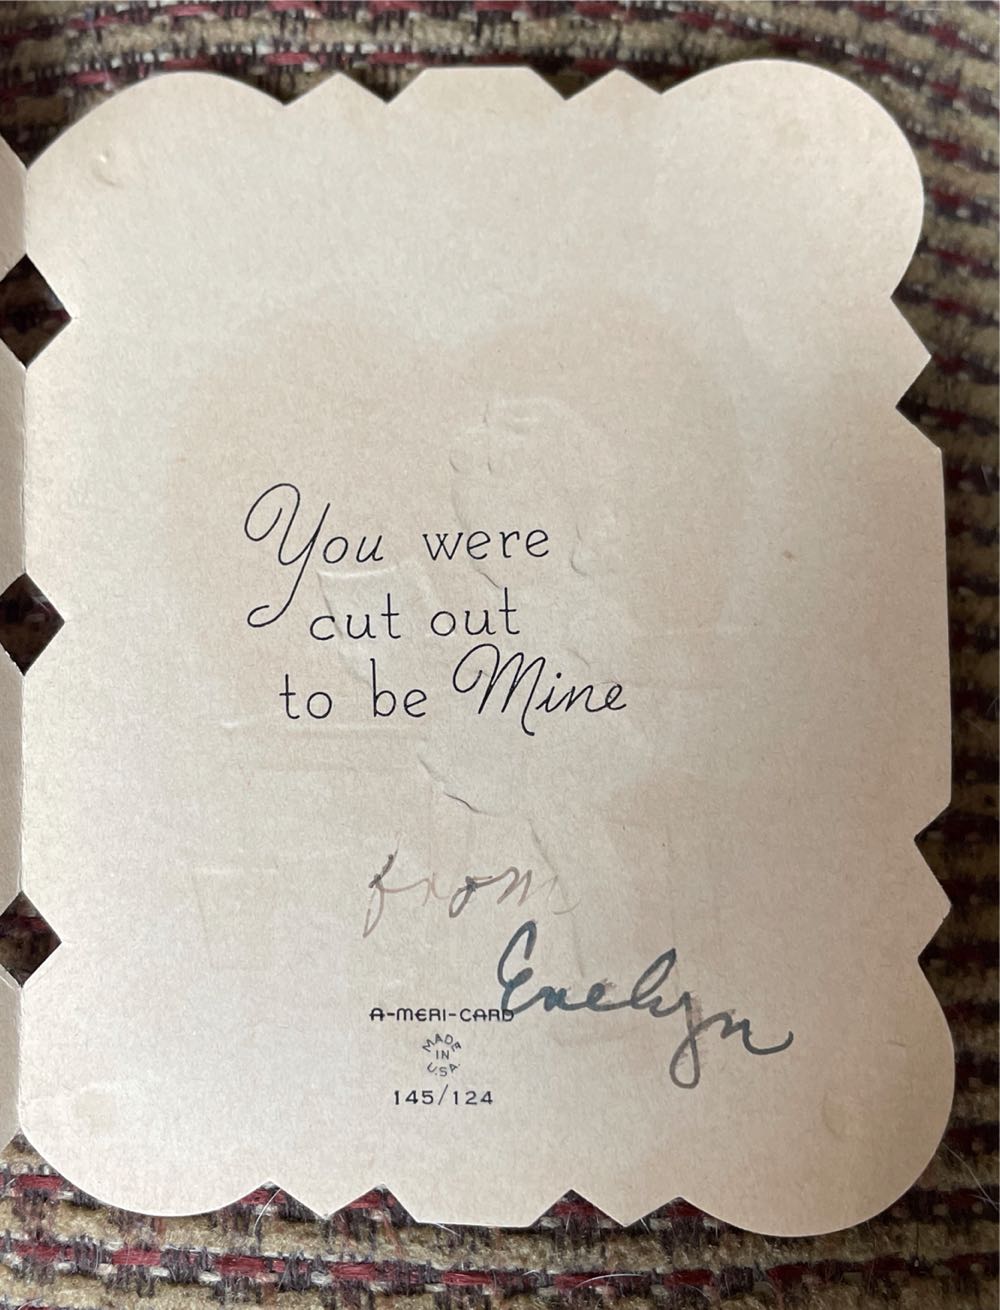 You were
cut out
to be Mine
from
Evelyn
A-MERI-CARD
MADE
IN
U.S.A.
145/124